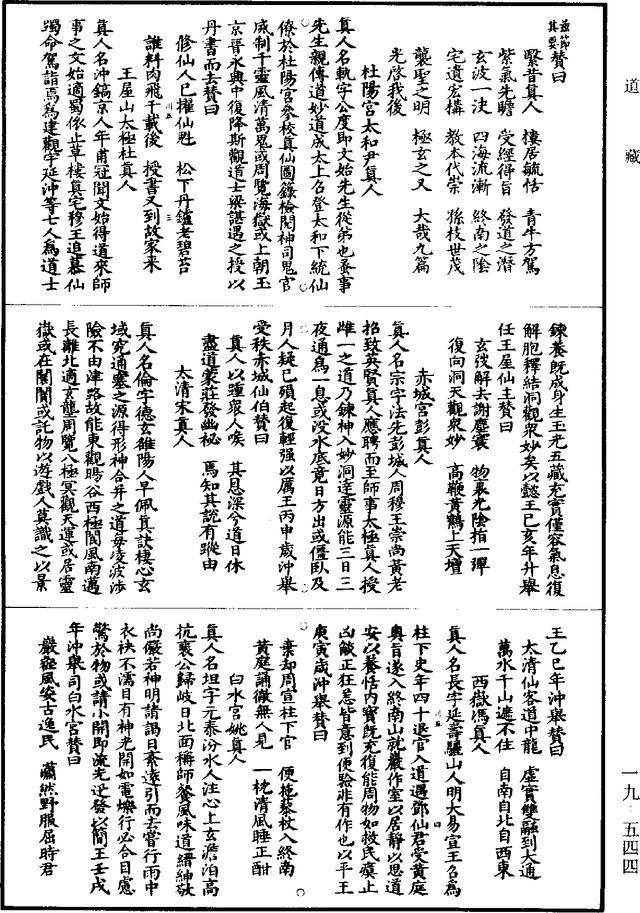 道藏
並節其要贊曰
繄昔真人　棲居毓恬　青牛方駕
紫氣先瞻　受經得旨　發道之潛
玄波一決　四海流漸　終南之陰
宅遺宏構　教本代崇　孫枝世茂
襲聖之明　極玄之又　大哉九篇
光啓我後
杜陽宮太和尹真人
真人名軌字公度即文始先生從弟也蚤事
先生親傳道妙道成太上召登太和下統仙
僚於杜陽宮參校真仙圖籙檢閱神司鬼官
咸制千靈風清萬鬼或周覽海嶽或上朝玉
京晉永興中復降斯觀道士梁諶遇之授以
丹書而去贊曰
修仙人已擢仙甦　松下丹鑪老碧苔
誰料肉飛千載後　授書又到故家来
王屋山太極杜真人
真人名沖鎬京人年甫冠聞文始得道來師
事之文始適蜀依止草樓真宅穆王追慕仙
躅命駕詣焉為建觀宇延沖等七人為道士
鍊養既成身生玉光五藏充實僅容氣息復
解胞釋結洞觀衆妙矣以懿王己亥年升舉
任王屋仙主贊曰
玄弢解去謝塵寰　物表光陰指一彈
復向洞天觀衆妙　高鞭黃鶴上天壇
赤城宮彭真人
真人名宗字法先彭城人周穆王崇尚黃老
招致英賢真人應聘而至師事太極真人授
雌一之道乃鍊神入妙洞達靈源能三日三
夜通為一息或沒水底竟日方出或僵臥及
月人疑已殞起復輕强以厲王丙申歲沖舉
受秩赤城仙伯贊曰
真人以踵衆人喉　其息深兮道日休
盡道蒙莊發幽秘　焉知其說有蹤由
太清宋真人
真人名倫字德玄雒陽人早佩真訣棲心玄
域究通塞之源得形神合并之道毋凌波涉
險不由津路故能東觀暘谷西極閬風南邁
長離北適玄壟周覽八極冥觀天運或居靈
嶽或在闤闠或託物以遊戲人莫識之以景
王乙巳年沖舉贊曰
太清仙客道中龍　虛實雙融到大通
萬水千山遮不住　自南自北自西東
西嶽馮真人
真人名長字延壽驪山人明大易宣王召為
柱下史年四十退官入道遇鄧仙君受黃庭
奧旨遂入終南山就巖作室以居靜以思道
安以養恬内實既充復能周物如救民瘼止
凶燄正狂恙皆意到便驗非有作也以平王
庚寅歲沖舉贊曰
棄却周宣柱下官　便拖藜杖入終南
黃庭誦徹無人見　一枕清風睡正酣
白水宮姚真人
真人名坦字元泰汾水人注心上玄澹泊高
抗襄公歸岐日北面稱師餐風味道縉紳敬
尚儼若神明諸謁日紊遠引而去嘗行雨中
衣袂不濡目有神光開如電爍行必合目慮
驚於物或請小開即流光迸發以簡王壬戌
年沖舉司白水宮贊曰
巖壑風姿古逸民　蕭然野服屈時君
一九·五四四